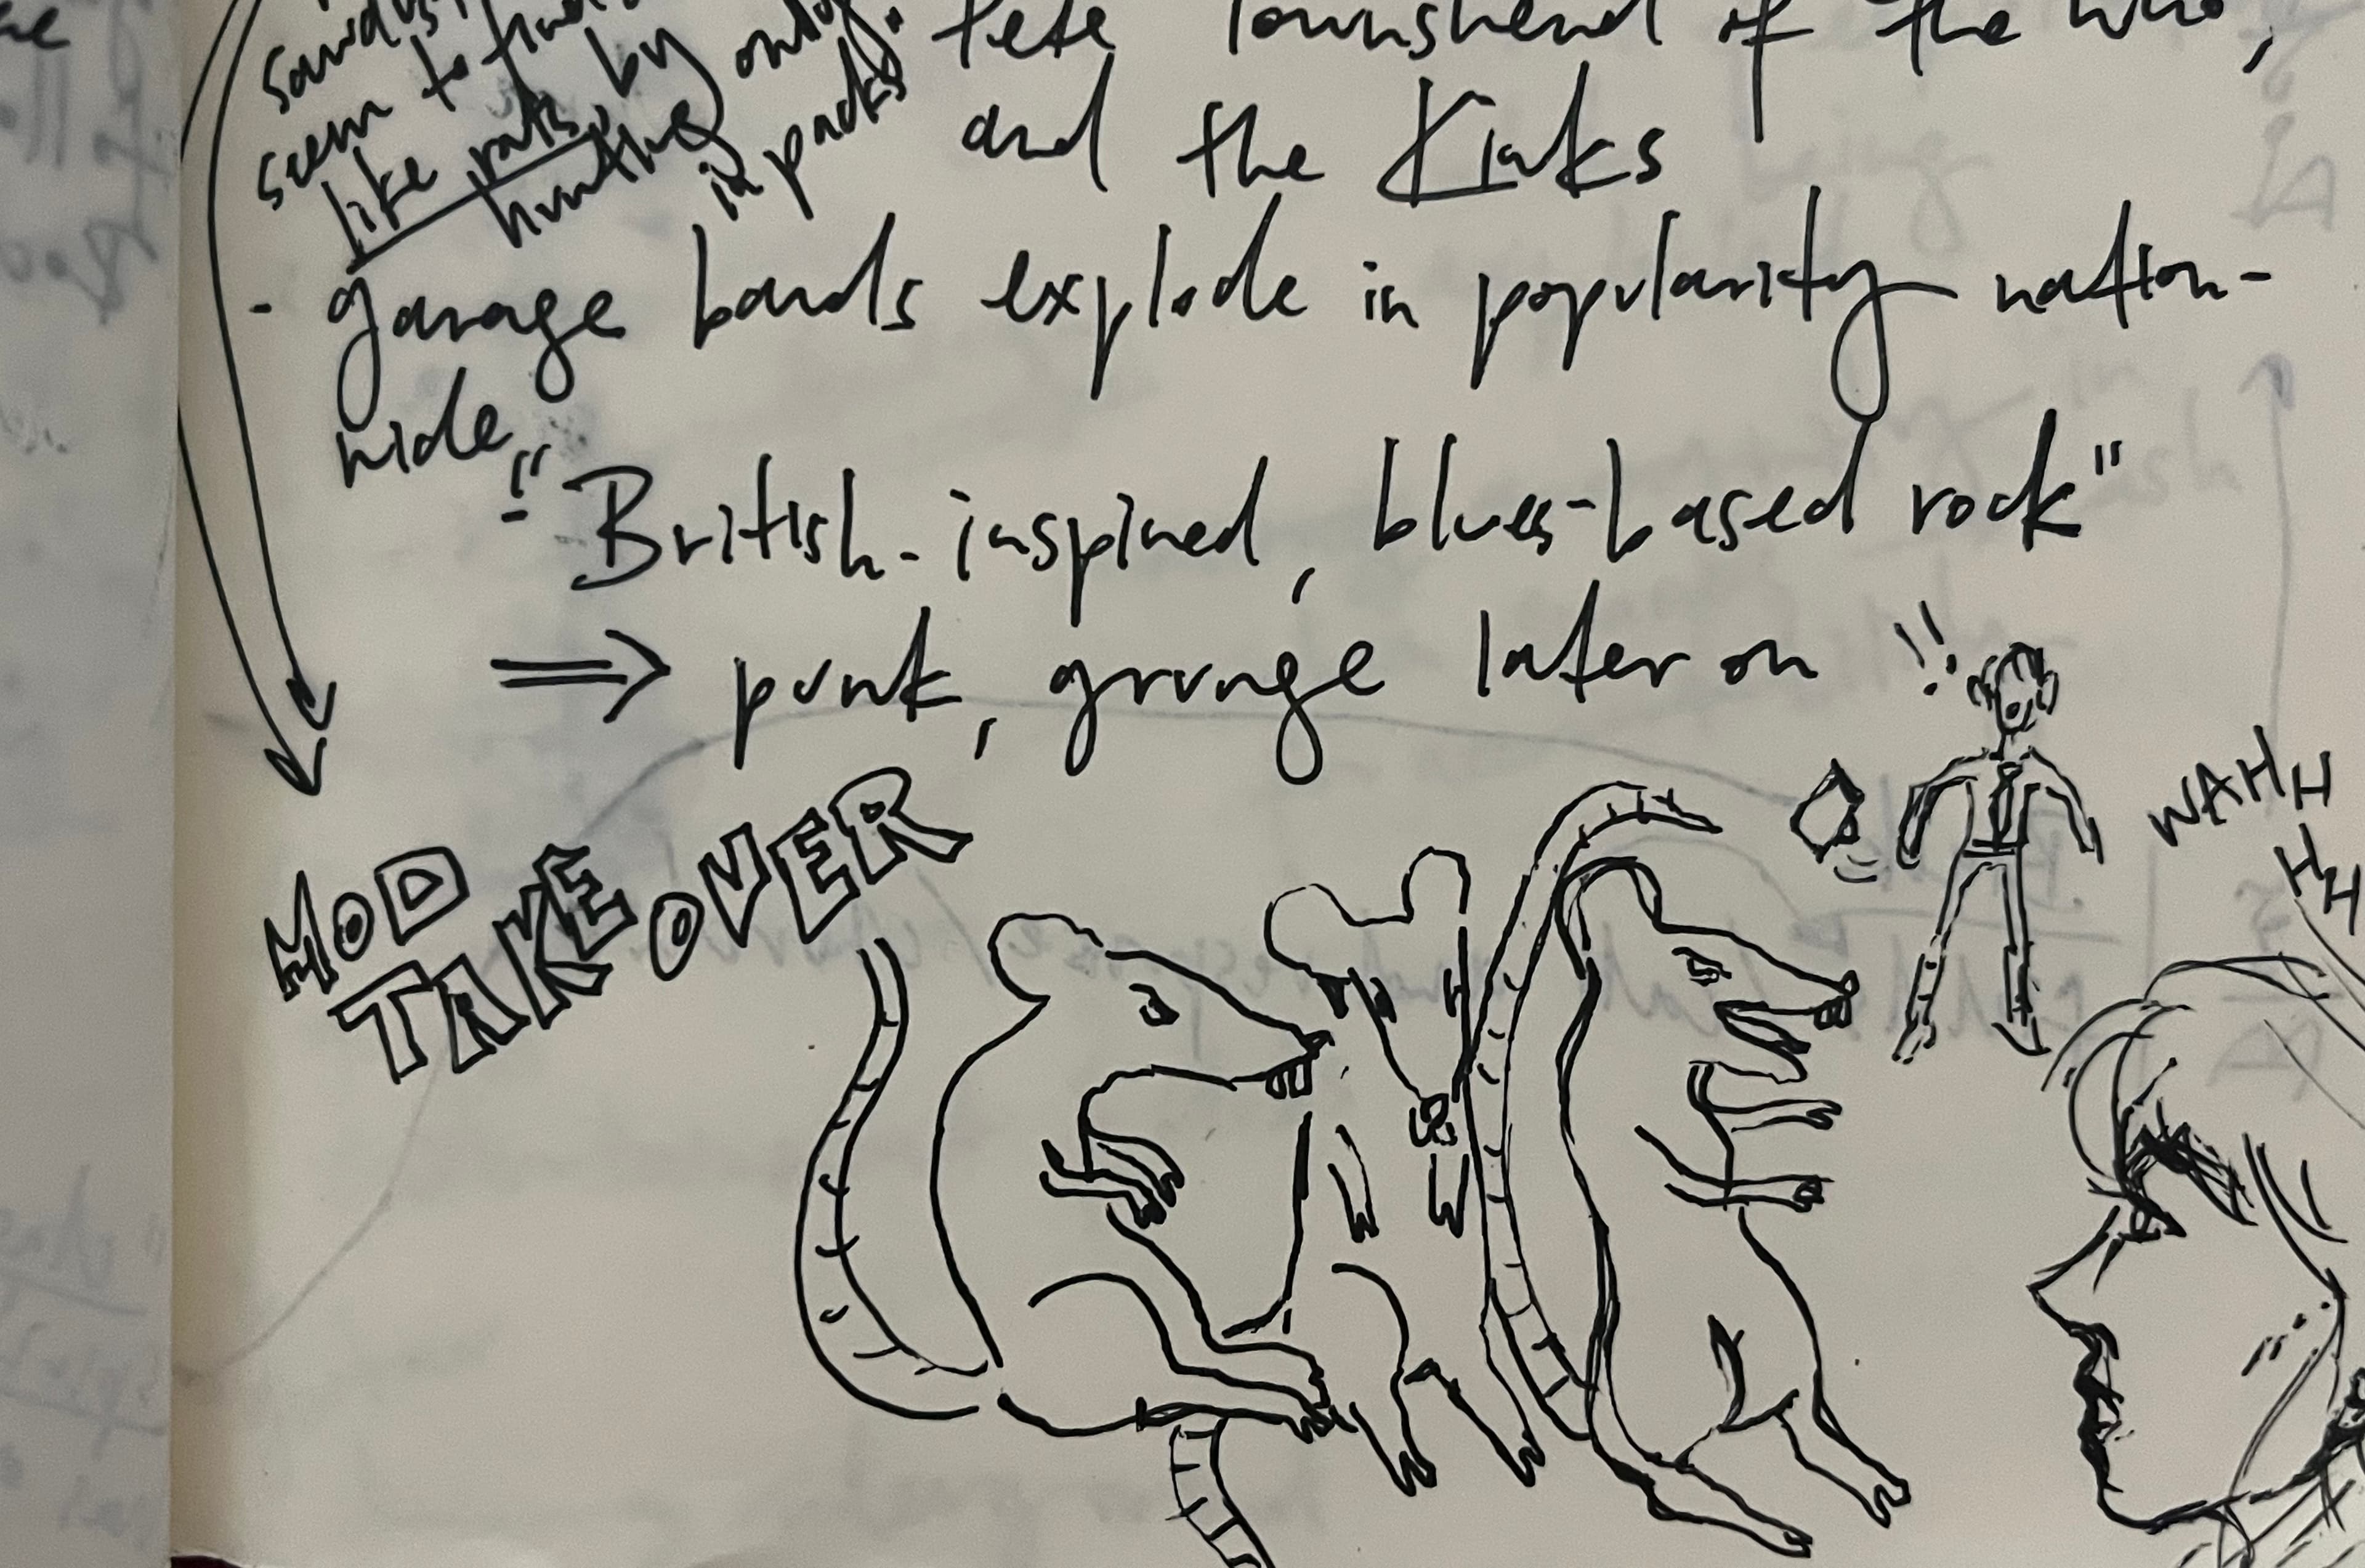 seem to
like rats, by only
hunting in packs.
Pete Townshend of the Who,
and the Kinks
- garage bands explode in popularity nation-
wide
- "British-inspired, blues-based rock"
⇒ punk, grunge later on !!
MOD
TAKE OVER
WAHH
HH